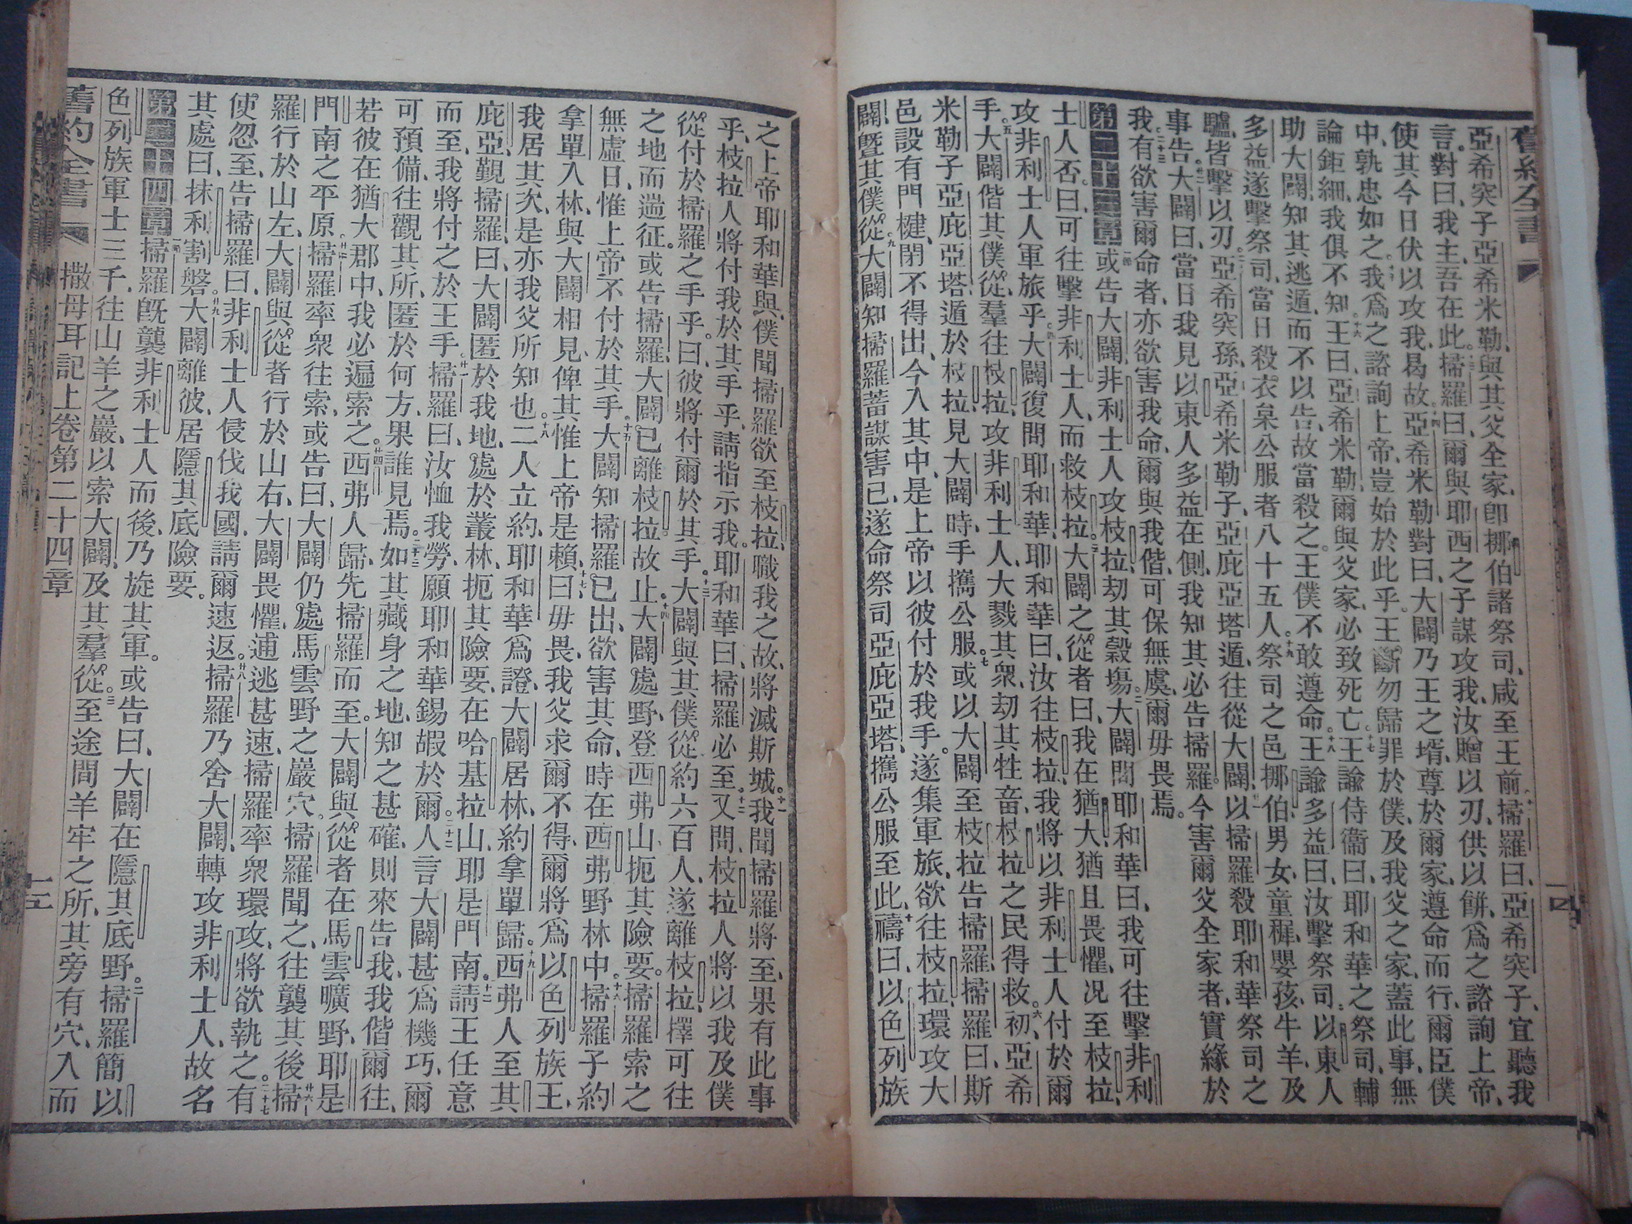 亞希突子亞希米勒與其父全家卽挪伯諸祭司咸至王前掃羅曰亞希突子宜聽我
言對曰我主吾在此掃羅曰爾與耶西之子謀攻我汝贈以刃供以餅爲之諮詢上帝
使其今日伏以攻我曷故亞希米勒對曰大闢乃王之壻尊於爾家遵命而行爾臣僕
中孰忠如之我爲之諮詢上帝豈始於此乎王斷勿歸罪於僕及我父之家蓋此事無
論鉅細我俱不知王曰亞希米勒爾與父家必致死亡王諭侍衞曰耶和華之祭司輔
助大闢知其逃遁而不以告故當殺之王僕不敢遵命王諭多益曰汝擊祭司以東人
多益遂擊祭司當日殺衣枲公服者八十五人祭司之邑挪伯男女童穉嬰孩牛羊及
驢皆擊以刃亞希突孫亞希米勒子亞庇亞塔遁往從大闢以掃羅殺耶和華祭司之
事告大闢曰當日我見以東人多益在側我知其必告掃羅今害爾父全家者實緣於
我有欲害爾命者亦欲害我命爾與我偕可保無虞爾毋畏焉
第二十三章或告大闢非利士人攻枝拉劫其穀塲大闢問耶和華曰我可往擊非利
士人否曰可往擊非利士人而救枝拉大闢之從者曰我在猶大猶且畏懼况至枝拉
攻非利士人軍旅乎大闢復問耶和華耶和華曰汝往枝拉我將以非利士人付於爾
手大闢偕其僕從羣往枝拉攻非利士人大戮其衆劫其牲畜枝拉之民得救初亞希
米勒子亞庇亞塔遁於枝拉見大闢時手攜公服或以大闢至枝拉告掃羅掃羅曰斯
邑設有門楗閉不得出今入其中是上帝以彼付於我手遂集軍旅欲往枝拉環攻大
闢曁其僕從大闢知掃羅蓄謀害已遂命祭司亞庇亞塔攜公服至此禱曰以色列族
之上帝耶和華與僕聞掃羅欲至枝拉職我之故將滅斯城我聞掃羅將至果有此事
乎枝拉人將付我於其手乎請指示我耶和華曰掃羅必至又問枝拉人將以我及僕
從付於掃羅之手乎曰彼將付爾於其手大闢與其僕從約六百人遂離枝拉擇可往
之地而遄征或告掃羅大闢已離枝拉故止大闢處野登西弗山扼其險要掃羅索之
無虛日惟上帝不付於其手大闢知掃羅已出欲害其命時在西弗野林中掃羅子約
拿單入林與大闢相見俾其惟上帝是賴曰毋畏我父求爾不得爾將爲以色列族王
我居其次是亦我父所知也二人立約耶和華爲證大闢居林約拿單歸西弗人至其
庇亞覲掃羅曰大闢匿於我地處於叢林扼其險要在哈基拉山耶是門南請王任意
而至我將付之於王手掃羅曰汝恤我勞願耶和華錫嘏於爾人言大闢甚爲機巧爾
可預備往觀其所匿於何方果誰見焉如其藏身之地知之甚確則來告我我偕爾往
若彼在猶大郡中我必遍索之西弗人歸先掃羅而至大闢與從者在馬雲曠野耶是
門南之平原掃羅率衆往索或告曰大闢仍處馬雲野之巖穴掃羅聞之往襲其後掃
羅行於山左大闢與從者行於山右大闢畏懼逋逃甚速掃羅率衆環攻將欲執之有
使忽至告掃羅曰非利士人侵伐我國請爾速返掃羅乃舍大闢轉攻非利士人故名
其處曰抹利割磐大闢離彼居隱其底險要
第二十四章掃羅旣襲非利士人而後乃旋其軍或告曰大闢在隱其底野掃羅簡以
色列族軍士三千往山羊之巖以索大闢及其羣從至途間羊牢之所其旁有穴入而
舊約全書 撒母耳記上卷第二十四章